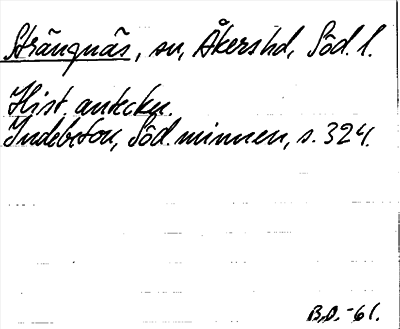 Strängnäs, sn, Åkers hd, Söd. l.
Hist. anteckn.
Indebetou, Söd. minnen, s. 324.
B.D. -61.